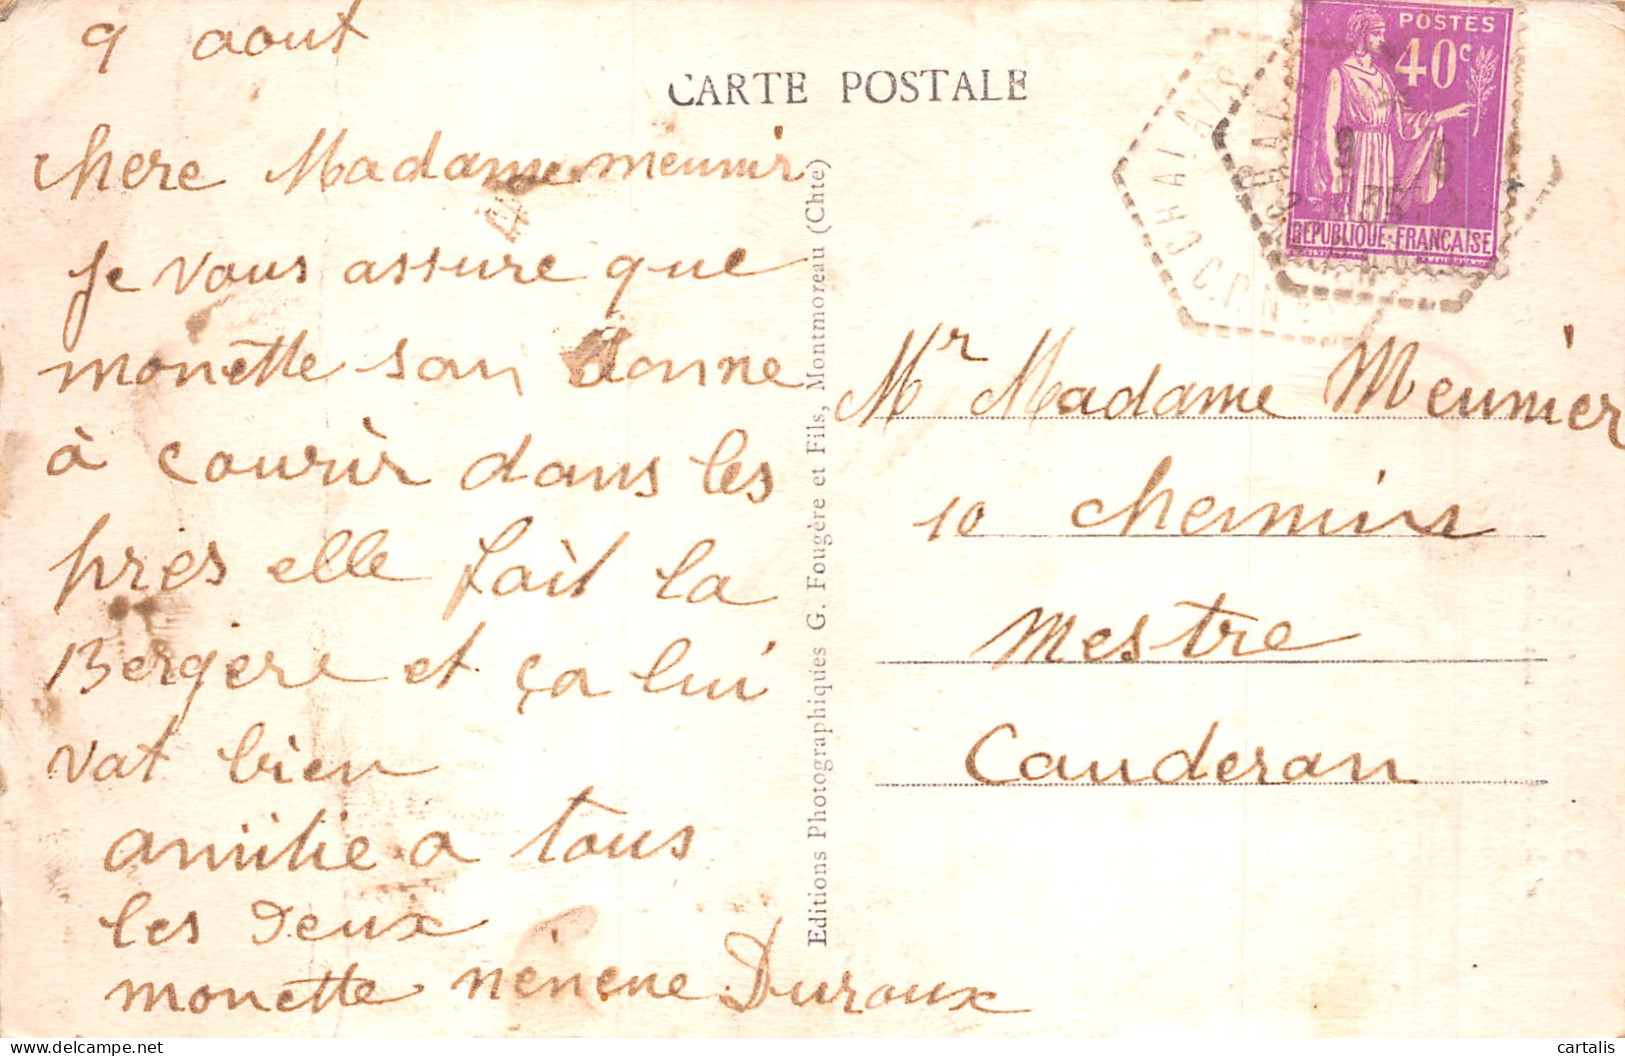 9 aout
CARTE POSTALE
POSTES
40c
REPUBLIQUE FRANCAISE
CHALAIS
chere Madame meunir
je vous assure que
monette son donne
à courir dans les
pres elle fait la
Bergere et ça lui
vat bien
amitie a tous
les deux
monette nènene Duroux
Editions Photographiques G. Fougère et Fils, Montmoreau (Chte)
Mr Madame Meunier
10 chemins
mestre
Cauderan
cartalis
delcampe.net